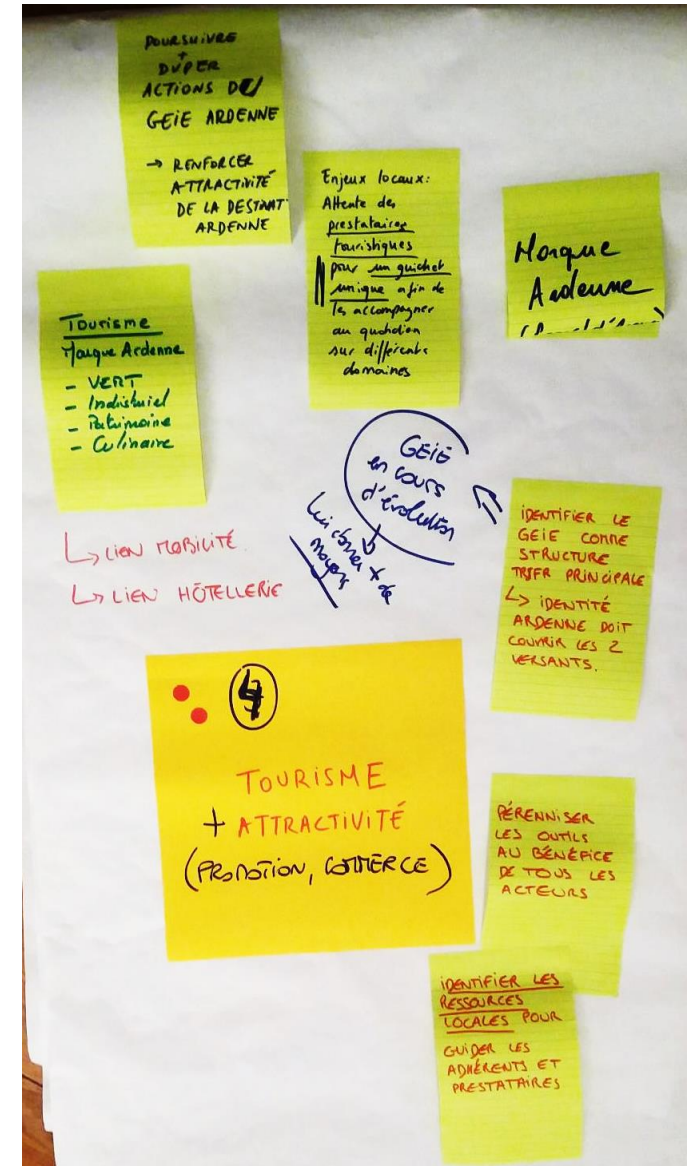 POURSUIVRE
+
DUPER
ACTIONS DU
GEIE ARDENNE
→ RENFORCER
ATTRACTIVITÉ
DE LA DESTINAT°
ARDENNE
Enjeux locaux:
Attente des
prestataires
touristiques
pour un guichet
unique afin de
les accompagner
au quotidien
sur différents
domaines
Marque
Ardenne
Tourisme
Marque Ardenne
- VERT
- Industriel
- Patrimoine
- Culinaire
↳ LIEN MOBILITÉ
↳ LIEN HÔTELLERIE
GEIE
en cours
d'évolution
Lui donner + de
moyens
IDENTIFIER LE
GEIE COMME
STRUCTURE
TRSFR PRINCIPALE
↳ IDENTITÉ
ARDENNE DOIT
COUVRIR LES 2
VERSANTS.
4
TOURISME
+ ATTRACTIVITÉ
(PROMOTION, COMMERCE)
PÉRENNISER
LES OUTILS
AU BÉNÉFICE
DE TOUS LES
ACTEURS
IDENTIFIER LES
RESSOURCES
LOCALES POUR
GUIDER LES
ADHÉRENTS ET
PRESTATAIRES